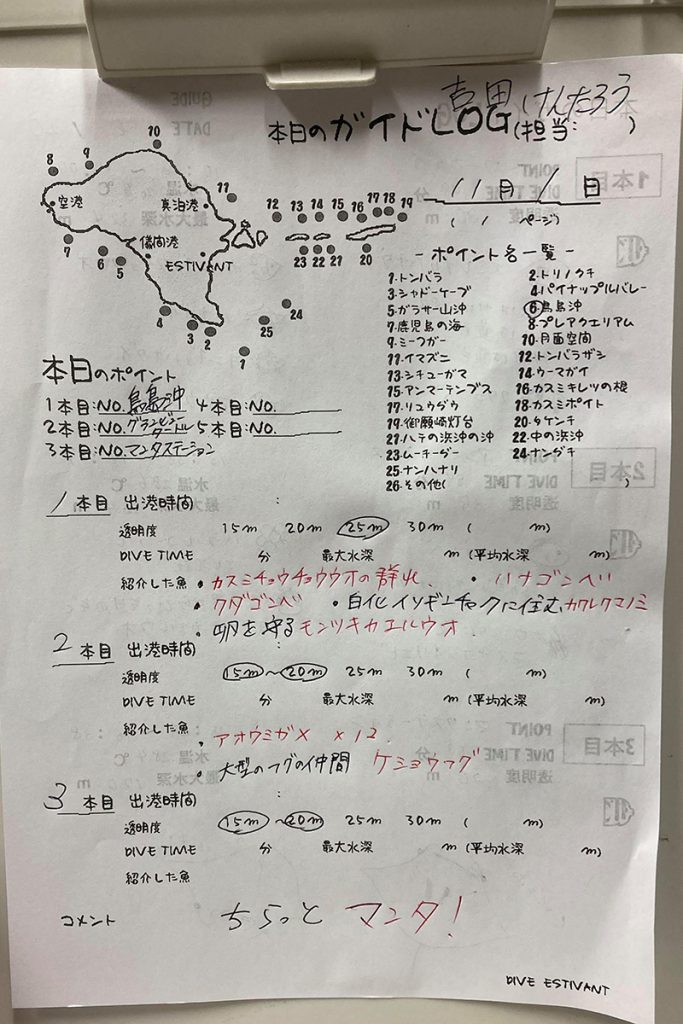 本日のガイドLOG(担当: 吉田 けんたろう)
11月 1日
( 1 ページ)
10
8
9
11
空港
真泊港
儀間港
ESTIVANT
12
13
14
15
16
17
18
19
7
6
5
23
22
21
20
4
3
2
25
24
1
- ポイント名一覧 -
1.トンバラ 2.トリノクチ
3.シャドーケーブ 4.パイナップルバレー
5.ガラサー山沖 6.鳥島沖
7.鹿児島の海 8.プレアクエリアム
9.ミーフガー 10.月面空間
11.イマズニ 12.トンバラザシ
13.シチューガマ 14.ウーマガイ
15.アンマーテンプス 16.カスミキレツの根
17.リュウグウ 18.カスミポイト
19.御願崎灯台 20.タケンチ
21.ハテの浜沖の沖 22.中の浜沖
23.ムーチーダー 24.ナングチ
25.ナンハナリ
26.その他( )
本日のポイント
1本目:NO.鳥島沖 4本目:NO.
2本目:NO. 5本目:NO.
3本目:NO.マンタステーション
1 本目 出港時間 :
透明度 15m 20m 25m 30m ( m)
DIVE TIME 分 最大水深 m (平均水深 m)
紹介した魚 ・カスミチョウチョウウオの群れ. ・ハナゴンベ
・クダゴンベ ・白化イソギンチャクに住む、カクレクマノミ
・卵を守るモンツキカエルウオ
2 本目 出港時間 :
透明度 15m~20m 25m 30m ( m)
DIVE TIME 分 最大水深 m (平均水深 m)
紹介した魚
・アオウミガメ ×12.
・大型のフグの仲間 ケショウフグ
3 本目 出港時間 :
透明度 15m~20m 25m 30m ( m)
DIVE TIME 分 最大水深 m (平均水深 m)
紹介した魚
コメント ちらっと マンタ!
DIVE ESTIVANT